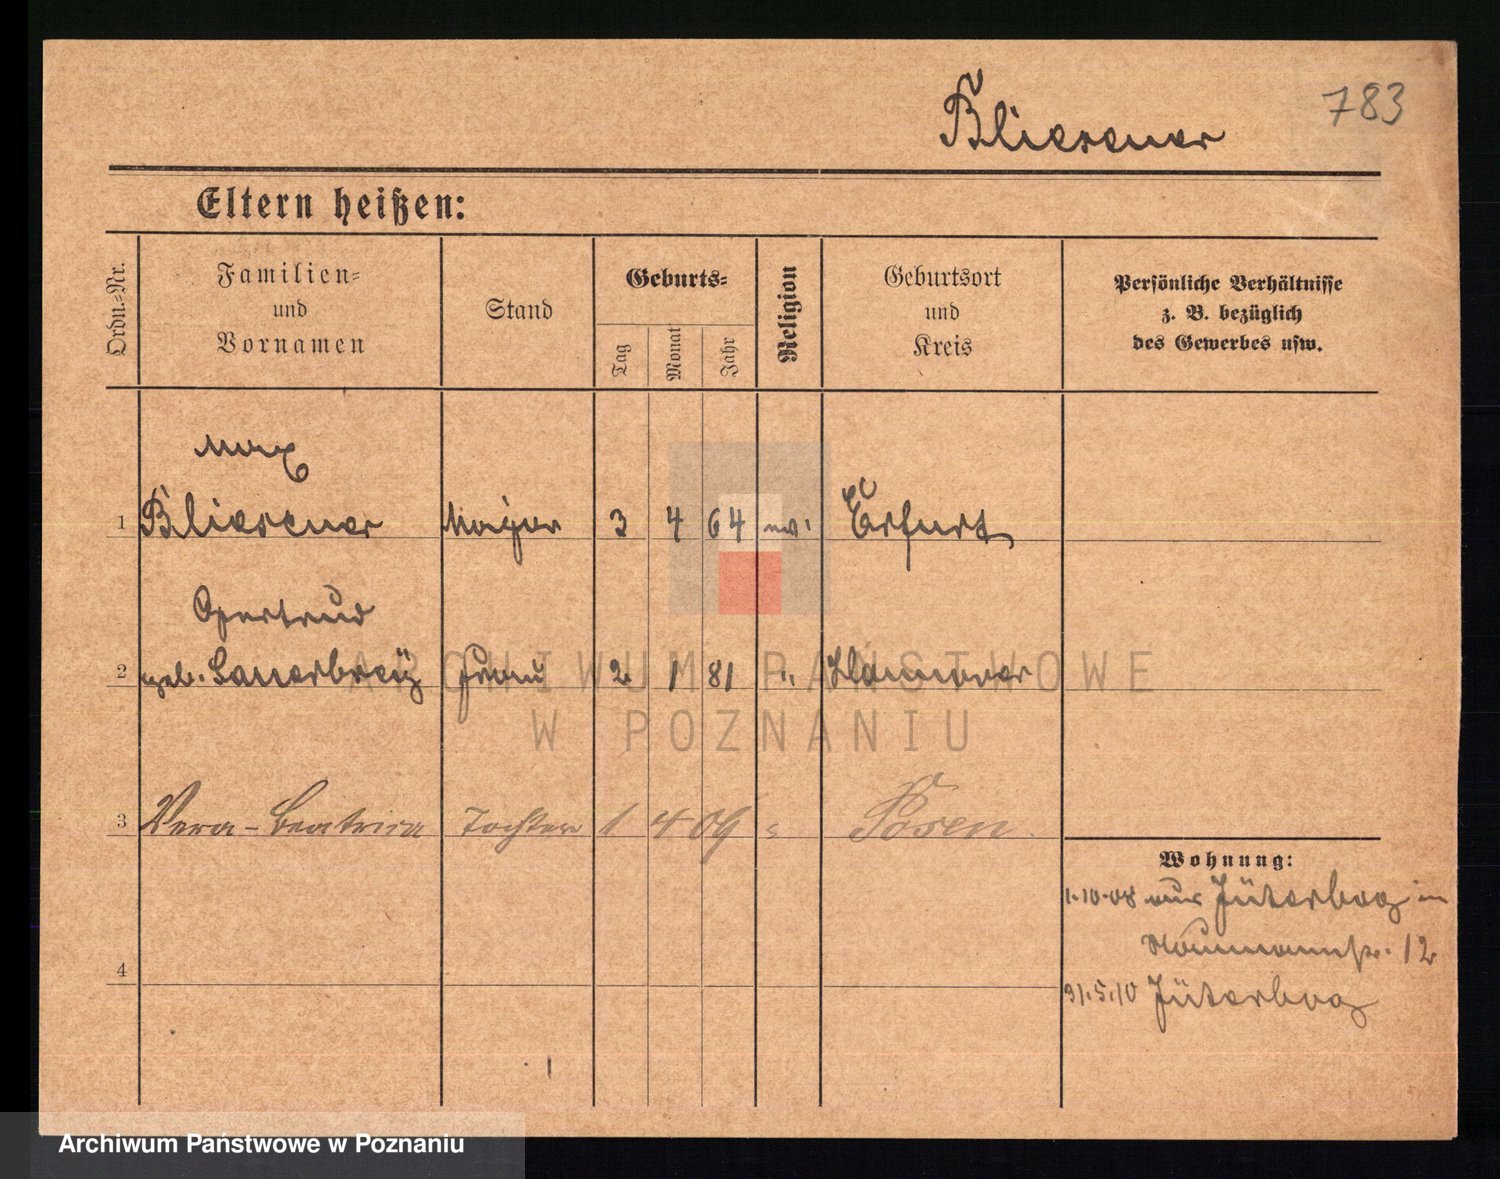 783
Bliesener
Eltern heißen:
Ordn.-Nr.
Familien-
und
Vornamen
Stand
Geburts-
Tag
Monat
Jahr
Religion
Geburtsort
und
Kreis
Persönliche Verhältnisse
z. B. bezüglich
des Gewerbes usw.
Max
1 Bliesener Major 3 4 64 ev. Erfurt
Gertrud
2 geb. Sauerbrey Frau 2 1 81 " Hannover
3 Vera-Beatrice Tochter 1 4 09 " Posen
Wohnung:
1.10.08 aus Jüterbog in
Naumannstr. 12
31.5.10 Jüterbog
4
ARCHIWUM PAŃSTWOWE
W POZNANIU
Archiwum Państwowe w Poznaniu